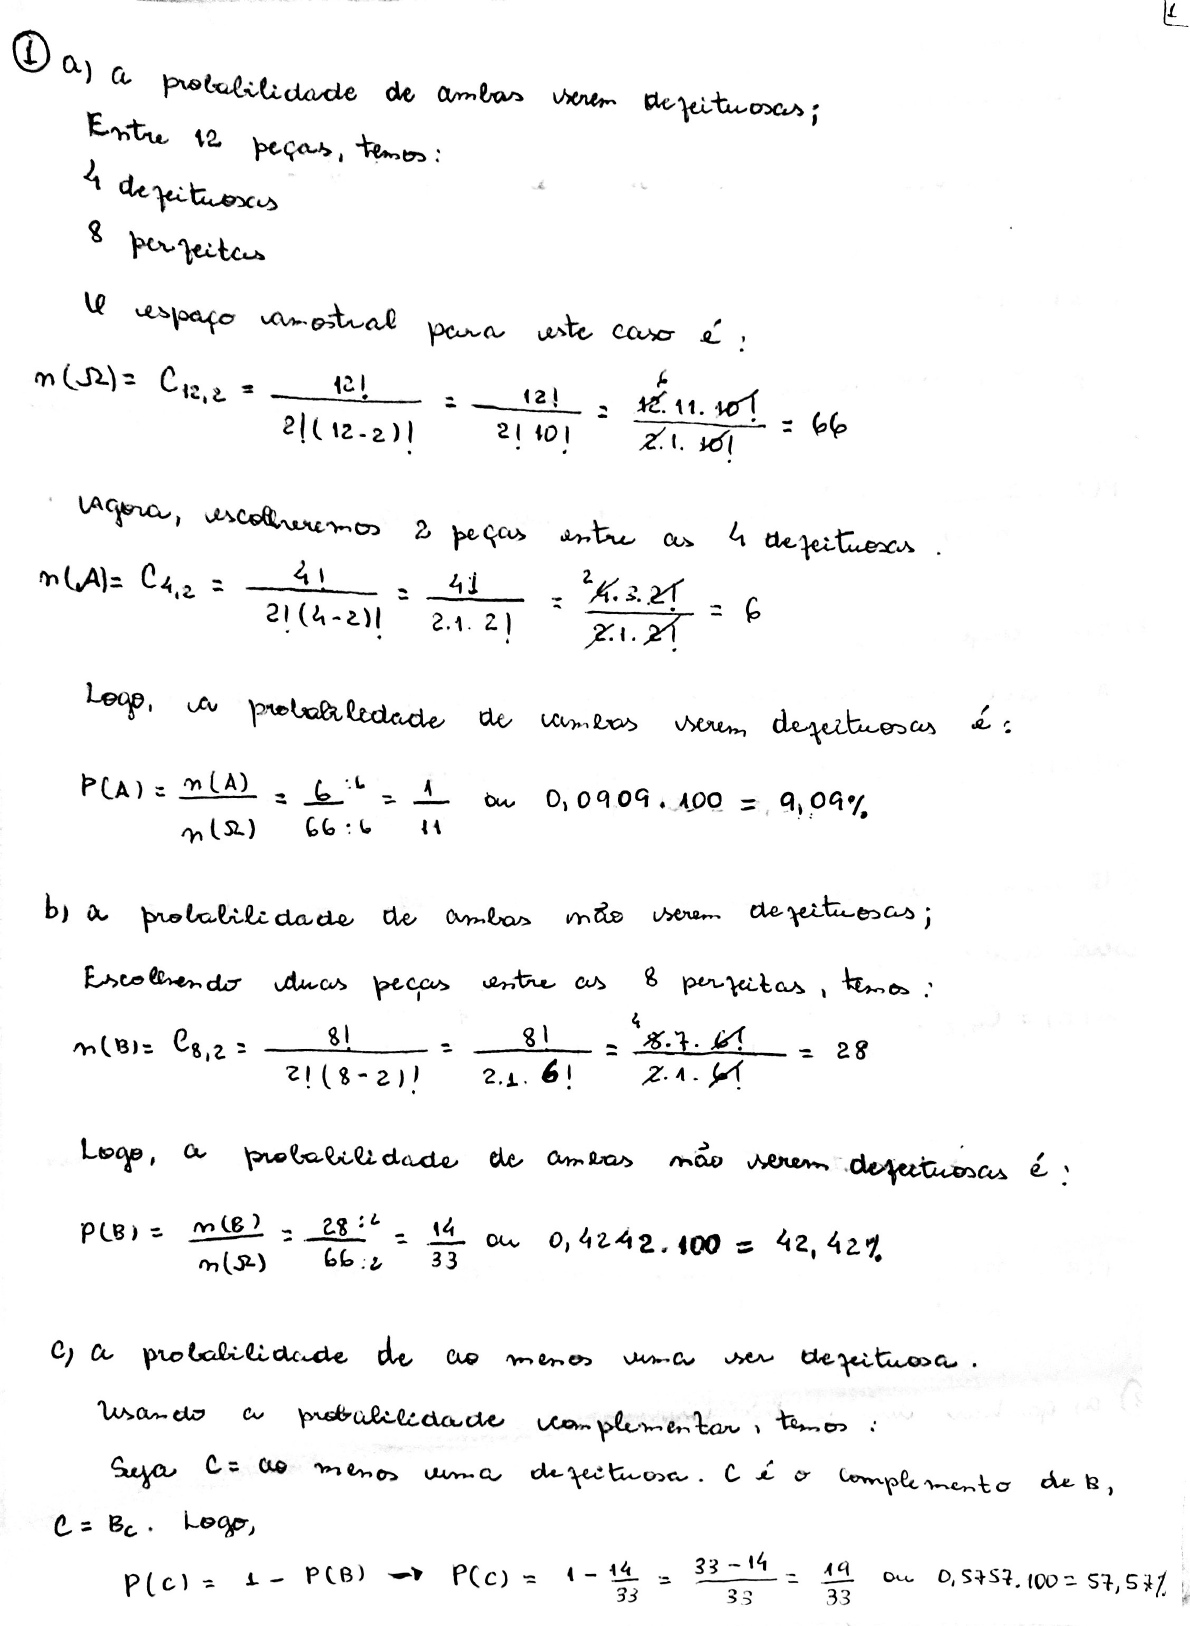 1
① a) a probabilidade de ambas serem defeituosas;
Entre 12 peças, temos:
4 defeituosas
8 perfeitas
O espaço amostral para este caso é:
n(Ω) = C12,2 = 12! / 2!(12-2)! = 12! / 2! 10! = 6 12. 11. 10! / 2. 1. 10! = 66
Agora, escolheremos 2 peças entre as 4 defeituosas.
n(A) = C4,2 = 4! / 2!(4-2)! = 4! / 2.1. 2! = 2 4. 3. 2! / 2. 1. 2! = 6
Logo, a probabilidade de ambas serem defeituosas é:
P(A) = n(A) / n(Ω) = 6 :6 / 66 :6 = 1 / 11 ou 0,0909. 100 = 9,09%
b) a probabilidade de ambas não serem defeituosas;
Escolhendo duas peças entre as 8 perfeitas, temos:
n(B) = C8,2 = 8! / 2!(8-2)! = 8! / 2.1. 6! = 4 8. 7. 6! / 2. 1. 6! = 28
Logo, a probabilidade de ambas não serem defeituosas é:
P(B) = n(B) / n(Ω) = 28 :2 / 66 :2 = 14 / 33 ou 0,4242. 100 = 42,42%
c) a probabilidade de ao menos uma ser defeituosa.
Usando a probabilidade complementar, temos:
Seja C = ao menos uma defeituosa. C é o complemento de B,
C = Bc. Logo,
P(C) = 1 - P(B) → P(C) = 1 - 14/33 = 33 - 14 / 33 = 19 / 33 ou 0,5757. 100 = 57,57%